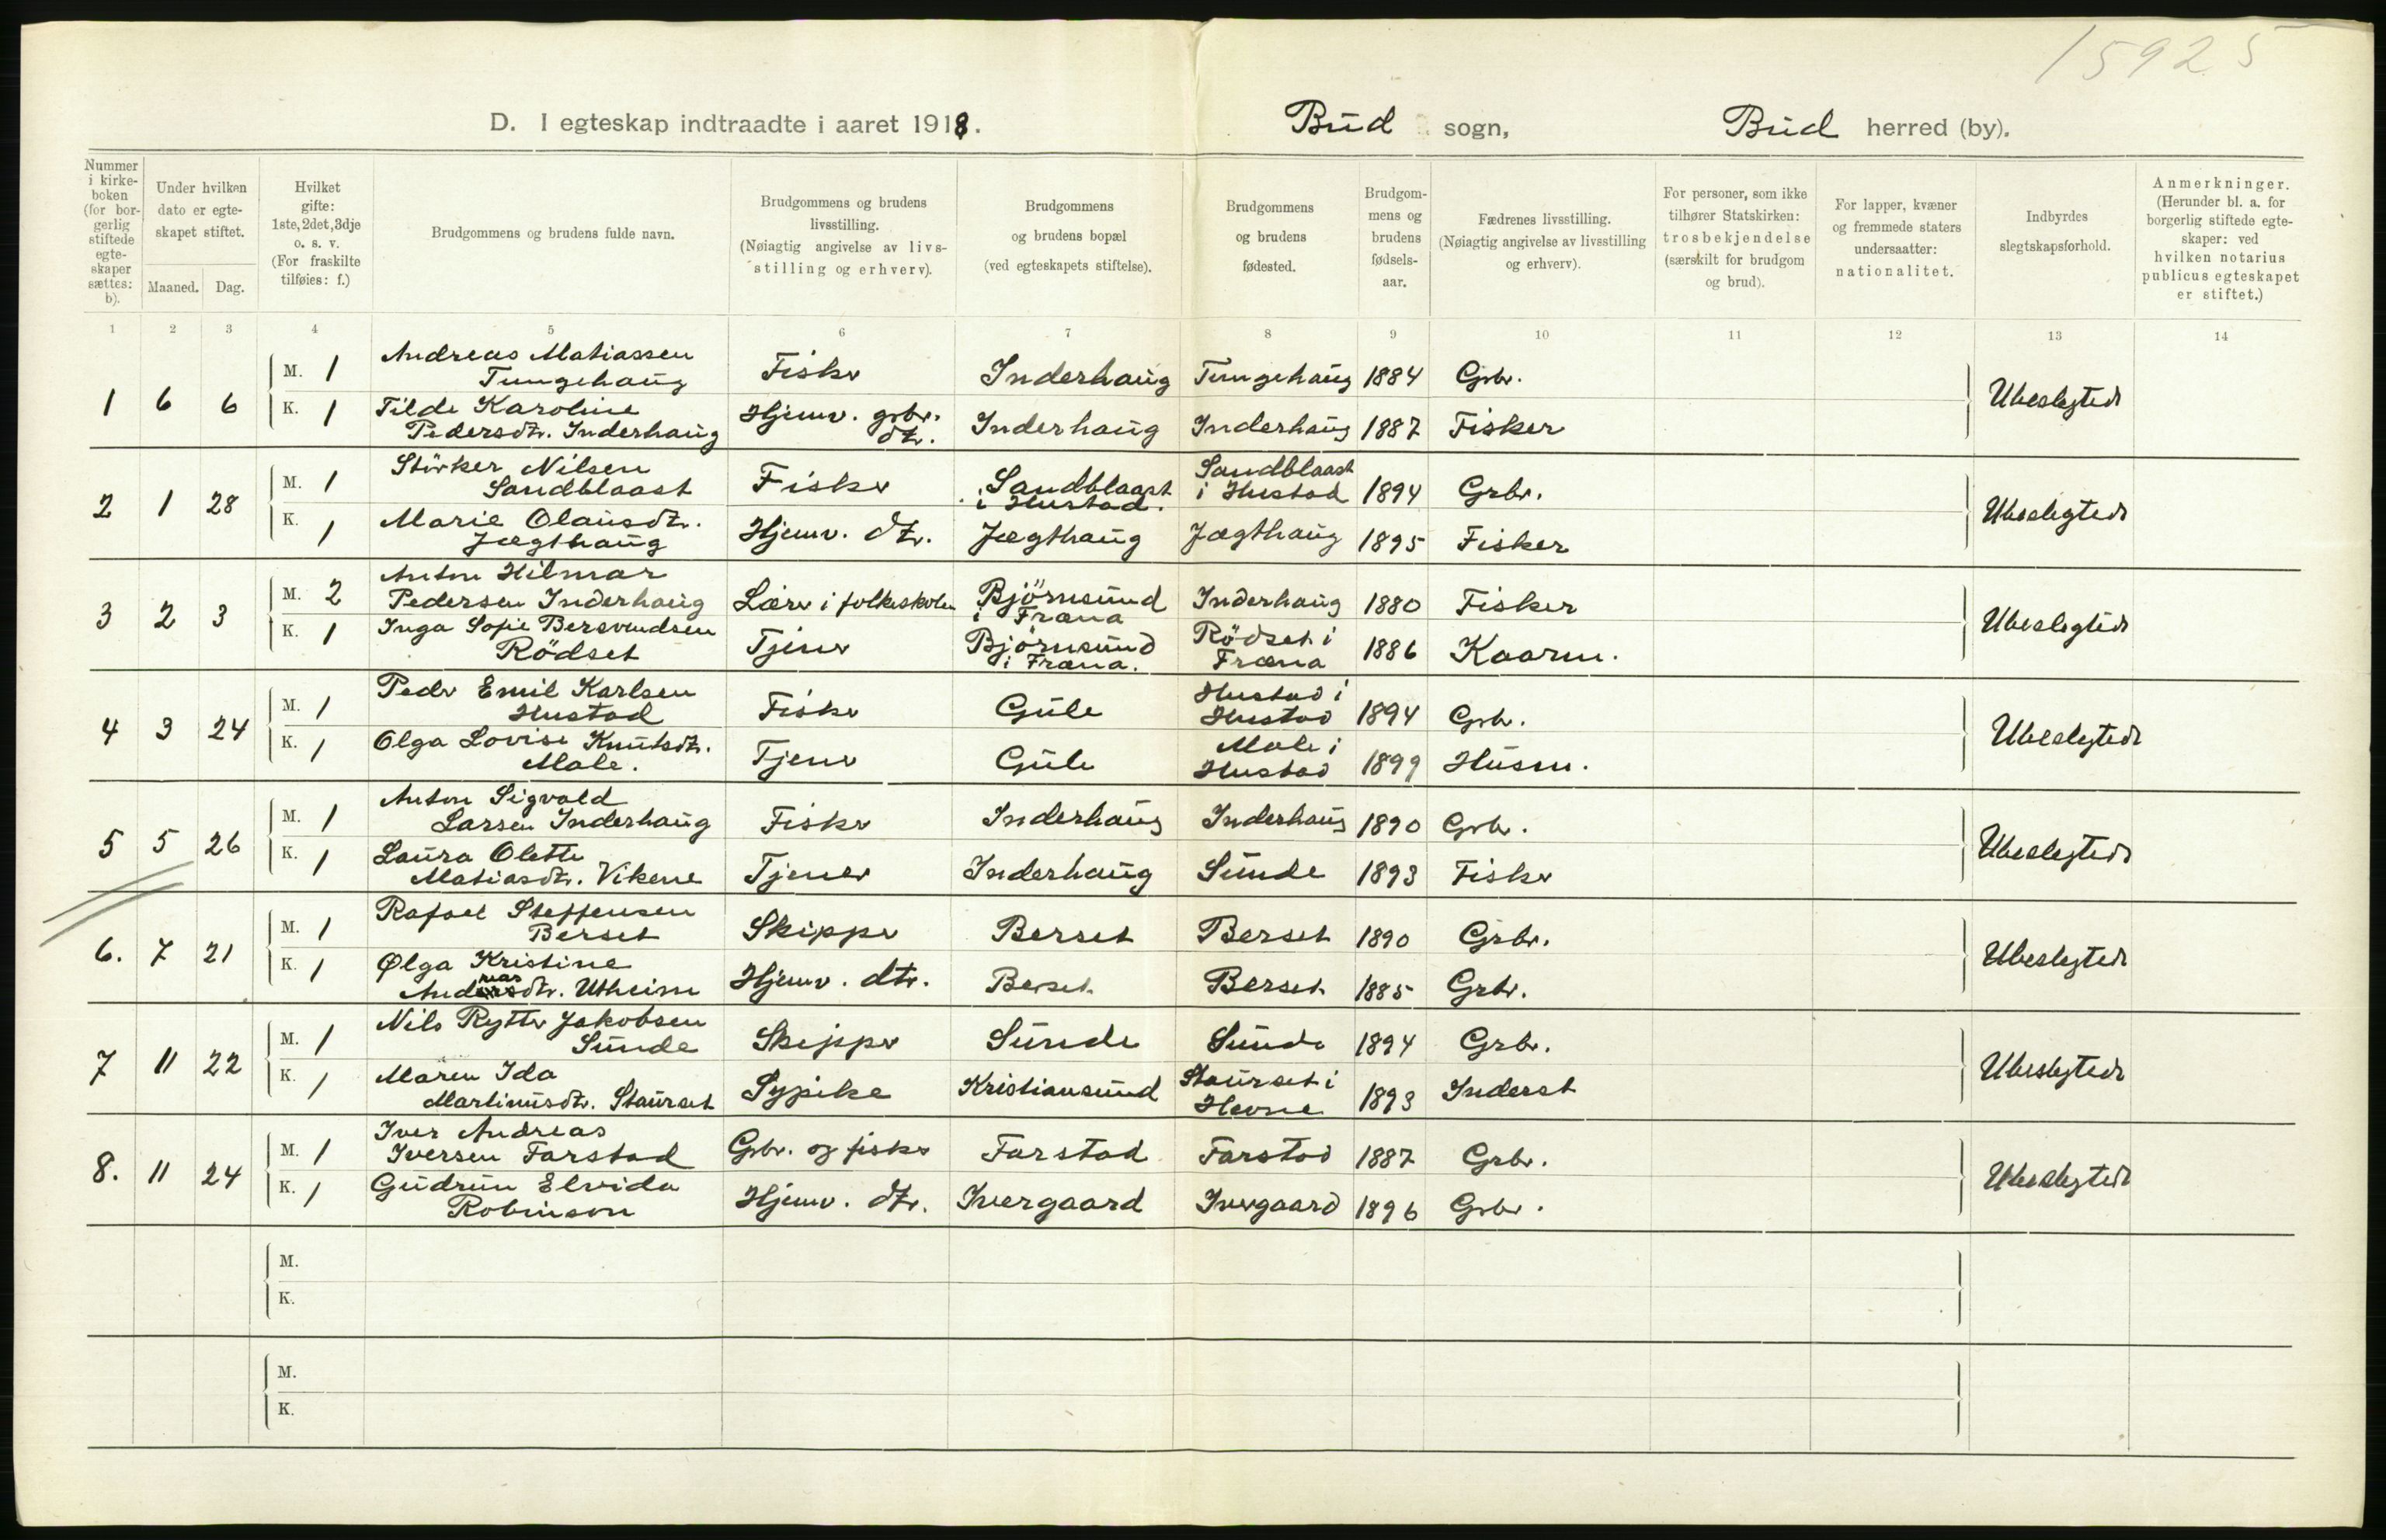 15925
D. I egteskap indtraadte i aaret 1918. Bud sogn, Bud herred (by).
Nummer i kirkeboken (for borgerlig stiftede egteskaper sættes: b).
Under hvilken dato er egteskapet stiftet.
Maaned. Dag.
Hvilket gifte: 1ste, 2det, 3dje o. s. v. (For fraskilte tilføies: f.)
Brudgommens og brudens fulde navn.
Brudgommens og brudens livsstilling. (Nøiagtig angivelse av livsstilling og erhverv).
Brudgommens og brudens bopæl (ved egteskapets stiftelse).
Brudgommens og brudens fødested.
Brudgommens og brudens fødselsaar.
Fædrenes livsstilling. (Nøiagtig angivelse av livsstilling og erhverv).
For personer, som ikke tilhører Statskirken: trosbekjendelse (særskilt for brudgom og brud).
For lapper, kvæner og fremmede staters undersaatter: nationalitet.
Indbyrdes slegtskapsforhold.
Anmerkninger. (Herunder bl. a. for borgerlig stiftede egteskaper: ved hvilken notarius publicus egteskapet er stiftet.)
1 2 3 4 5 6 7 8 9 10 11 12 13 14
1 6 6 M. 1 Andreas Matiassen Tungehaug Fisker Inderhaug Tungehaug 1884 Grbr. Ubeslegtede
K. 1 Tilde Karoline Pedersdtr. Inderhaug Hjemv. grbr. dtr. Inderhaug Inderhaug 1887 Fisker
2 1 28 M. 1 Störker Nilsen Sandblaast Fisker Sandblaast i Hustad. Sandblaast i Hustad 1894 Grbr. Ubeslegtede
K. 1 Marie Olausdtr. Jægthaug Hjemv. dtr. Jægthaug Jægthaug 1895 Fisker
3 2 3 M. 2 Anton Hilmar Pedersen Inderhaug Lærer i folkeskolen Björnsund i Fræna Inderhaug 1880 Fisker Ubeslegtede
K. 1 Inga Sofie Bersvendsen Rödset Tjener Björnsund i Fræna. Rödset i Fræna 1886 Kaarm.
4 3 24 M. 1 Peder Emil Karlsen Hustad Fisker Gule Hustad i Hustad 1894 Grbr. Ubeslegtede
K. 1 Olga Lovise Knutsdtr. Male. Tjener Gule Male i Hustad 1899 Husm.
5 5 26 M. 1 Anton Sigvald Larsen Inderhaug Fisker Inderhaug Inderhaug 1890 Grbr. Ubeslegtede
K. 1 Laura Olette Matiasdtr. Vikene Tjener Inderhaug Sunde 1893 Fisker
6. 7 21 M. 1 Rafael Steffensen Berset Skipper Berset Berset 1890 Grbr. Ubeslegtede
K. 1 Olga Kristine Andreasdtr. Utheim Hjemv. dtr. Berset Berset 1885 Grbr.
7 11 22 M. 1 Nils Rytter Jakobsen Sunde Skipper Sunde Sunde 1894 Grbr. Ubeslegtede
K. 1 Maren Ida Martinusdtr. Staurset Sypike Kristiansund Staurset i Hevne 1893 Inderst
8. 11 24 M. 1 Iver Andreas Iversen Farstad Grbr. og fisker Farstad Farstad 1887 Grbr. Ubeslegtede
K. 1 Gudrun Elvida Robinson Hjemv. dtr. Ivergaard Ivergaard 1896 Grbr.
M.
K.
M.
K.